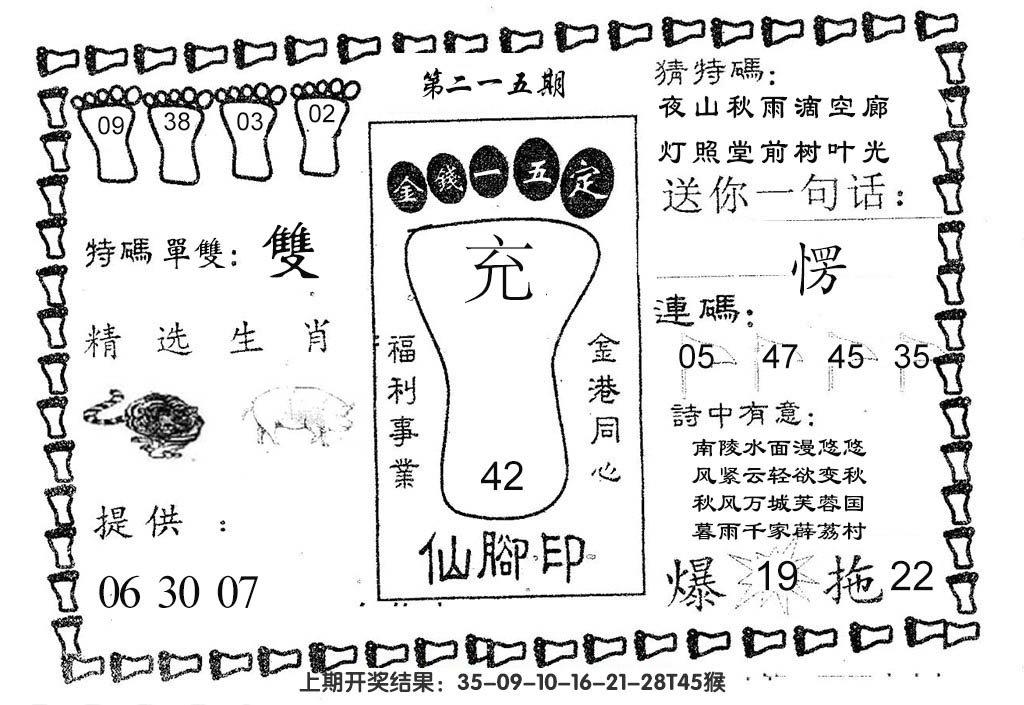 第二一五期
09 38 03 02
特碼單雙：雙
精选生肖
提供：
06 30 07
金錢一五定
充
福利事業
金港同心
42
仙腳印
猜特碼：
夜山秋雨滴空廊
灯照堂前树叶光
送你一句话：
愣
連碼：
05 47 45 35
詩中有意：
南陵水面漫悠悠
风紧云轻欲变秋
秋风万城芙蓉国
暮雨千家薜荔村
爆 19 拖 22
上期开奖结果：35-09-10-16-21-28T45猴